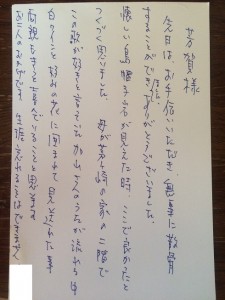 芳賀様
今日は、お手伝いいただき無事に散骨
することができました。ありがとうございました。
懐しい烏帽子岩が見えた時、ここで良かったと
つくづく思いました。母が茅ヶ崎の家の二階で
この歌が好きと言った加山さんのうたが流れる中
白いこと好みの花に囲まれて見送られた事
両親もきっと喜んでいることと思います
おふたりのおかげです 生涯忘れることはできません